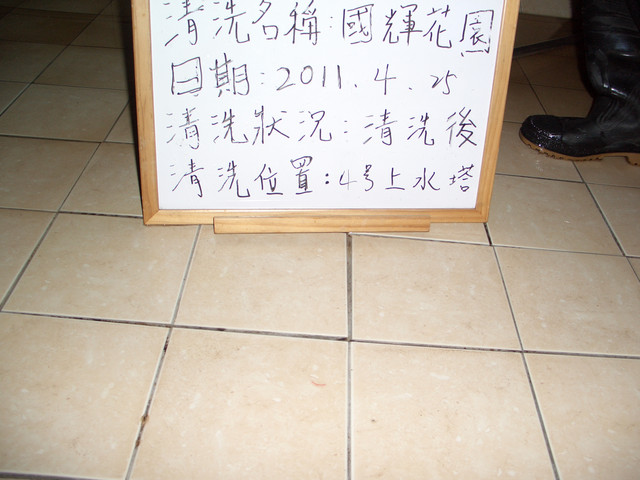 清洗名稱:國輝花園
日期:2011.4.25
清洗狀況:清洗後
清洗位置:4号上水塔